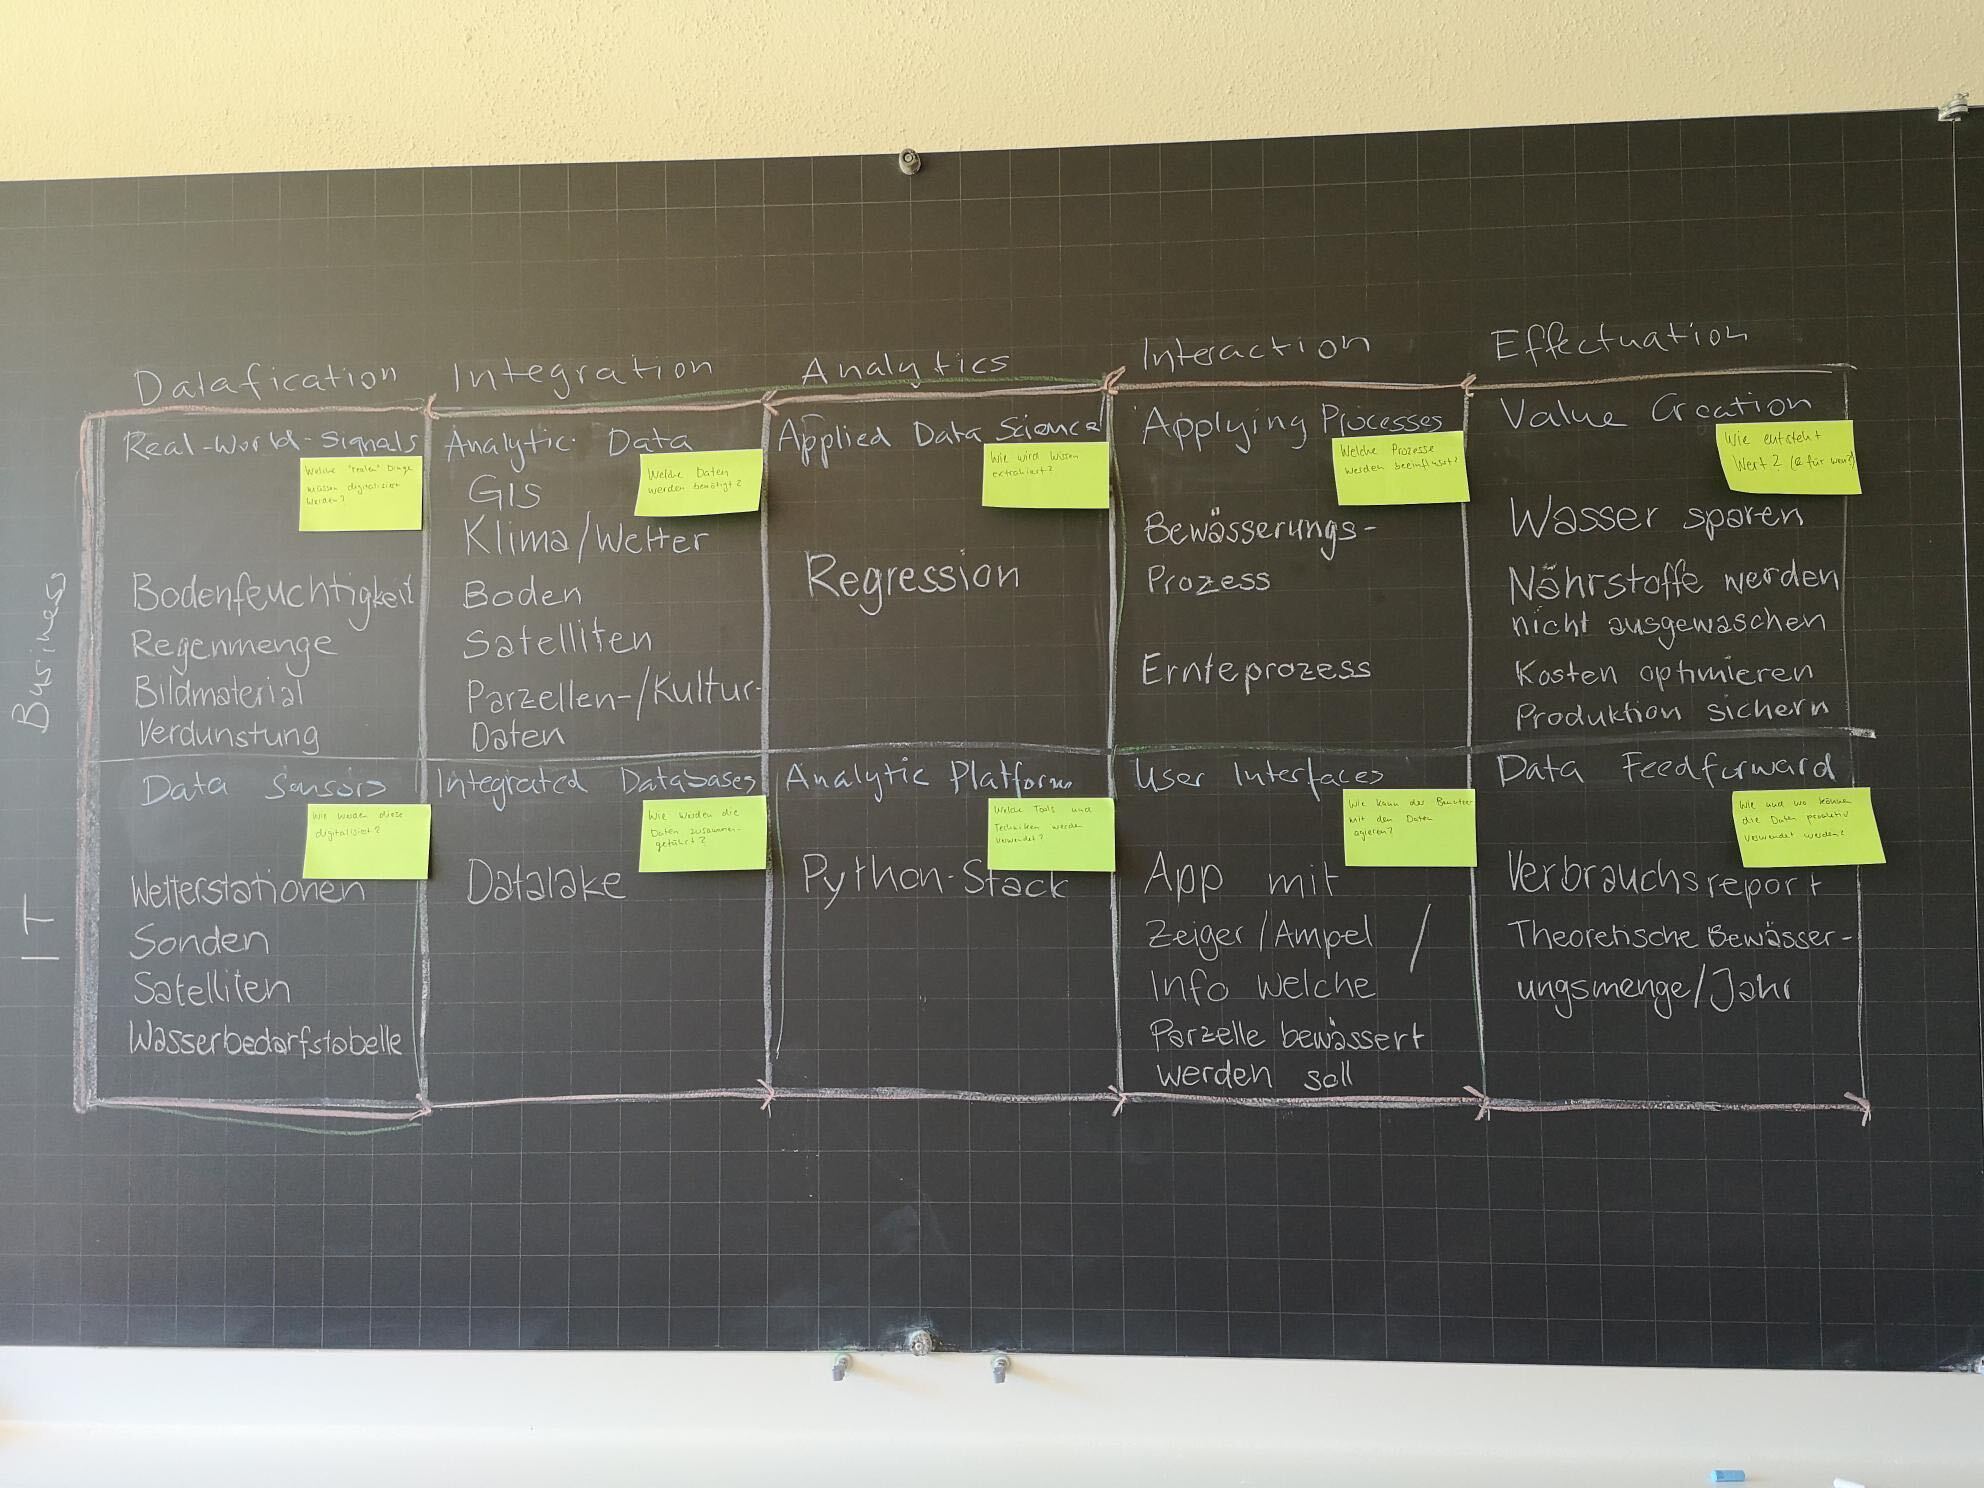 Datafication
Integration
Analytics
Interaction
Effectuation
Business
Real-World-Signals
Welche "realen" Dinge
müssen digitalisiert
werden?
Bodenfeuchtigkeit
Regenmenge
Bildmaterial
Verdunstung
Analytic Data
Welche Daten
werden benötigt?
GIS
Klima/Wetter
Boden
Satelliten
Parzellen-/Kultur-
Daten
Applied Data Science
Wie wird Wissen
extrahiert?
Regression
Applying Processes
Welche Prozesse
werden beeinflusst?
Bewässerungs-
Prozess
Ernteprozess
Value Creation
Wie entsteht
Wert? (& für wen?)
Wasser sparen
Nährstoffe werden
nicht ausgewaschen
Kosten optimieren
Produktion sichern
IT
Data Sensors
Wie werden diese
digitalisiert?
Wetterstationen
Sonden
Satelliten
Wasserbedarfstabelle
Integrated Databases
Wie werden die
Daten zusammen-
geführt?
Datalake
Analytic Platform
Welche Tools und
Techniken werden
verwendet?
Python-Stack
User Interfaces
Wie kann der Benutzer
mit den Daten
agieren?
App mit
Zeiger/Ampel /
Info welche
Parzelle bewässert
werden soll
Data Feedforward
Wie und wo können
die Daten proaktiv
verwendet werden?
Verbrauchsreport
Theoretische Bewässer-
ungsmenge/Jahr